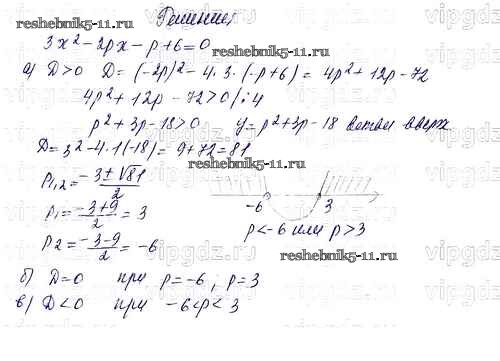 Решение:
reshebnik5-11.ru
3x² - 2px - p + 6 = 0
reshebnik5-11.ru
а) D > 0 D = (-2p)² - 4·3·(-p+6) = 4p² + 12p - 72
4p² + 12p - 72 > 0 /:4
p² + 3p - 18 > 0 y = p² + 3p - 18 ветви вверх
D = 3² - 4·1(-18) = 9 + 72 = 81
reshebnik5-11.ru
p₁,₂ = -3±√81/2
-6 3
p₁ = -3+9/2 = 3
p < -6 или p > 3
p₂ = -3-9/2 = -6
reshebnik5-11.ru
б) D = 0 при p = -6 ; p = 3
в) D < 0 при -6 < p < 3
vipgdz.ru